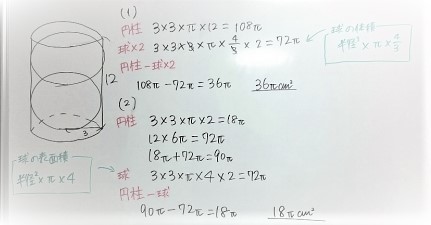 (1)
円柱 3×3×π×12=108π
球×2 3×3×3×π×4/3×2=72π
円柱-球×2
108π-72π=36π 36πcm³
球の体積
半径³×π×4/3
(2)
円柱 3×3×π×2=18π
12×6π=72π
18π+72π=90π
球 3×3×π×4×2=72π
円柱-球
90π-72π=18π 18πcm²
12
3
球の表面積
半径²×π×4